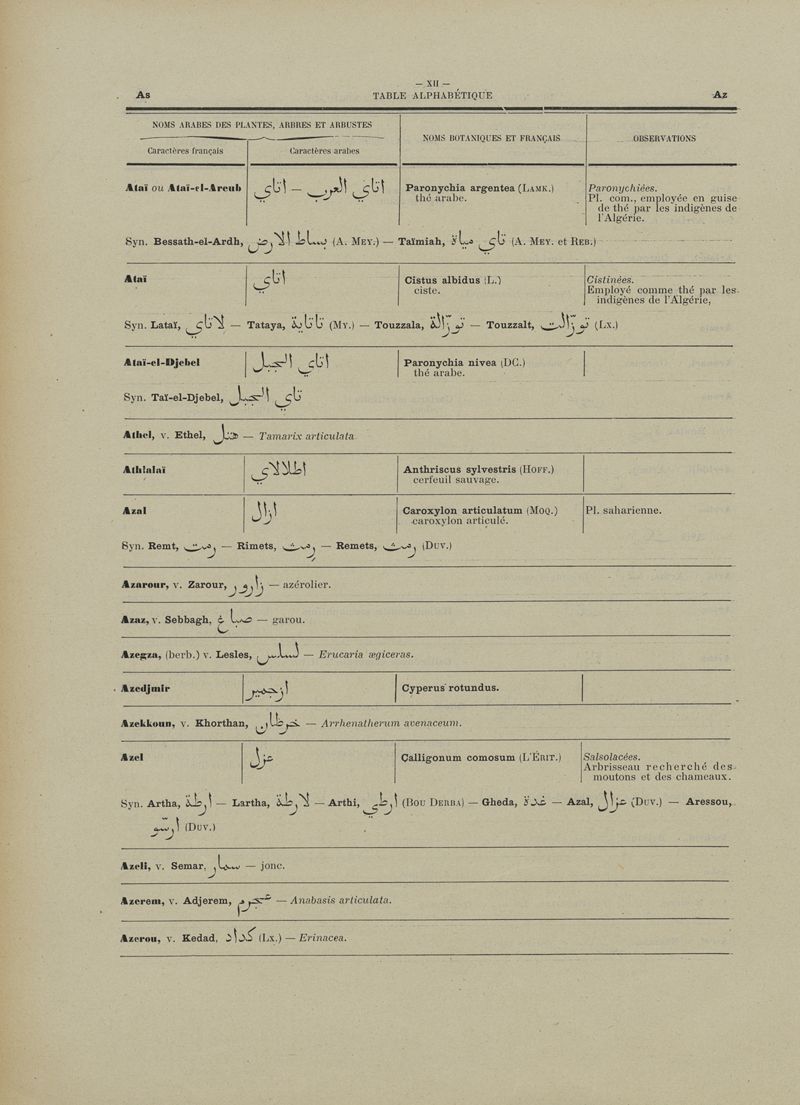 — XII —
As TABLE ALPHABÉTIQUE Az
NOMS ARABES DES PLANTES, ARBRES ET ARBUSTES
NOMS BOTANIQUES ET FRANÇAIS
OBSERVATIONS
Caractères français
Caractères arabes
Ataï ou Ataï-el-Areub اتاي — اتاي العرب Paronychia argentea (LAMK.) Paronychiées.
thé arabe. Pl. com., employée en guise
de thé par les indigènes de
l'Algérie.
Syn. Bessath-el-Ardh, بساط الارض (A. MEY.) — Taïmiah, (A. MEY. et REB.)
Ataï اتاي Cistus albidus (L.) Cistinées.
ciste. Employé comme thé par les
indigènes de l'Algérie,
Syn. Lataï, لاتاي — Tataya, تاتاية (MY.) — Touzzala, توزالة — Touzzalt, توزالت (LX.)
Ataï-el-Djebel اتاي الجبل Paronychia nivea (DC.)
thé arabe.
Syn. Taï-el-Djebel, تاي الجبل
Athel, v. Ethel, — Tamarix articulata
Athlalaï Anthriscus sylvestris (HOFF.)
cerfeuil sauvage.
Azal ازال Caroxylon articulatum (MOQ.) Pl. saharienne.
caroxylon articulé.
Syn. Remt, رمث — Rimets, رمث — Remets, رمث (DUV.)
Azarour, v. Zarour, زعرور — azérolier.
Azaz, v. Sebbagh, صباغ — garou.
Azegza, (berb.) v. Lesles, لسلس — Erucaria ægiceras.
Azedjmir ازجمير Cyperus rotundus.
Azekkoun, v. Khorthan, خرطان — Arrhenatherum avenaceum.
Azel عزل Calligonum comosum (L'ÉRIT.) Salsolacées.
Arbrisseau recherché des
moutons et des chameaux.
Syn. Artha, ارطة — Lartha, لارطة — Arthi, ارطي (BOU DERBA) — Gheda, غدة — Azal, عزال (DUV.) — Aressou,
(DUV.)
Azeli, v. Semar, سمار — jonc.
Azerem, v. Adjerem, عجرم — Anabasis articulata.
Azerou, v. Kedad, كداد (LX.) — Erinacea.